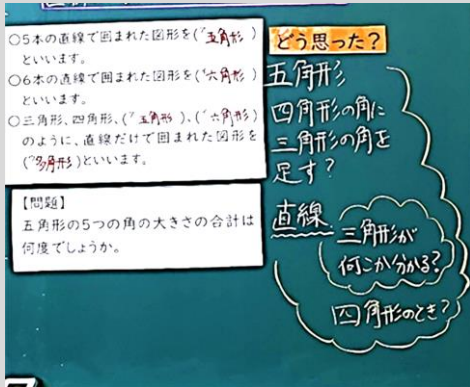 ○5本の直線で囲まれた図形を(五角形)
といいます。
○6本の直線で囲まれた図形を(六角形)
といいます。
○三角形、四角形、(五角形)、(六角形)
のように、直線だけで囲まれた図形を
(多角形)といいます。
【問題】
五角形の5つの角の大きさの合計は
何度でしょうか。
どう思った?
五角形
四角形の角に
三角形の角を
足す?
直線
三角形が
何こか分かる?
四角形のとき?